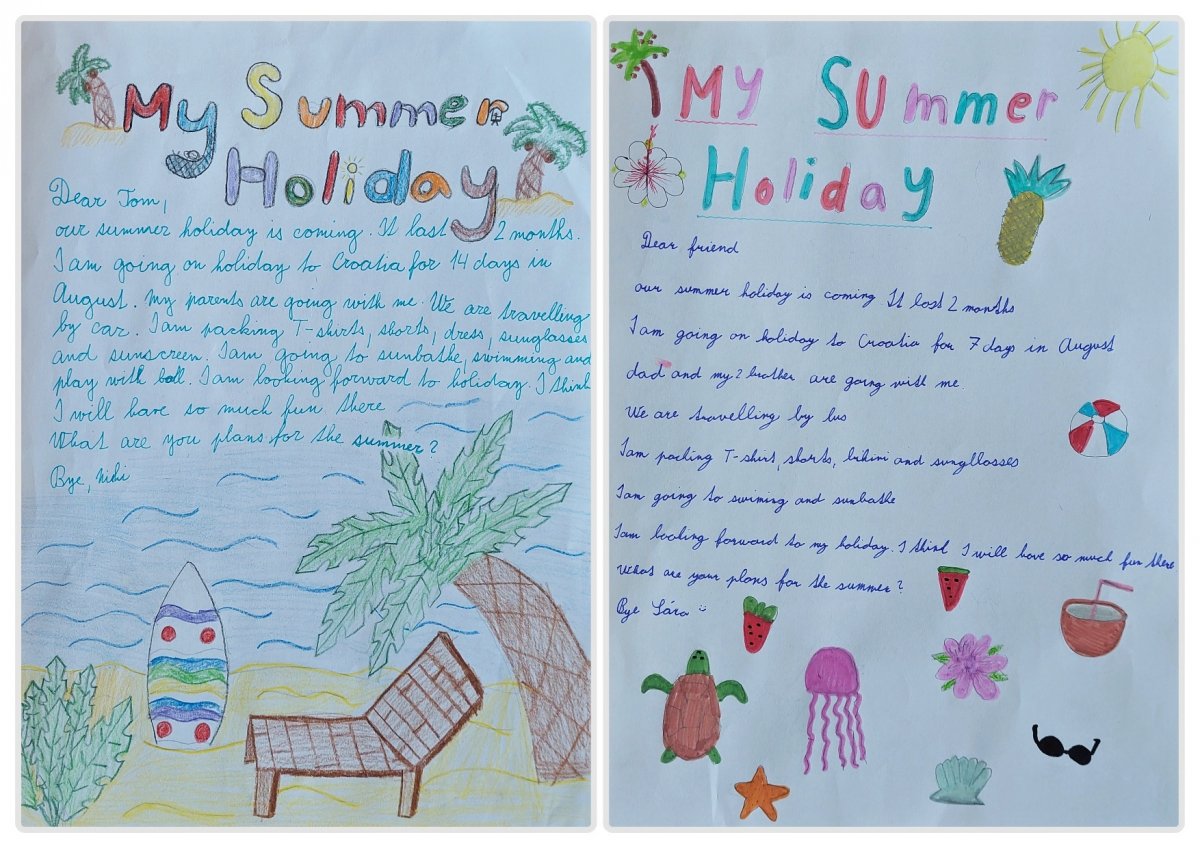 My Summer
Holiday
Dear Tom,
our summer holiday is coming. It last 2 months.
I am going on holiday to Croatia for 14 days in
August. My parents are going with me. We are travelling
by car. I am packing T-shirts, shorts, dress, sunglasses
and sunscreen. I am going to sunbathe, swimming and
play with ball. I am looking forward to holiday. I think
I will have so much fun there
What are you plans for the summer?
Bye, Niki
My Summer
Holiday
Dear friend
our summer holiday is coming It last 2 months
I am going on holiday to Croatia for 7 days in August
dad and my 2 brother are going with me
We are travelling by bus
I am packing T-shirt, shorts, bikini and sungllosses
I am going to swiming and sunbathe
I am looking forward to my holiday. I think I will have so much fun there
What are your plans for the summer?
Bye Sára